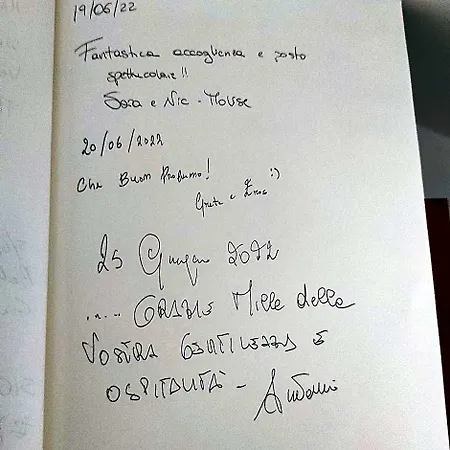 19/06/22
Fantastica accoglienza e posto
spettacolare!!
Sara e Nic - Mouse
20/06/2022
Che Buon Profumo!
:)
Greta e
25 Giugno 2022
.... GRAZIE Mille della
VOSTRA GENTILEZZA E
OSPITALITÀ -